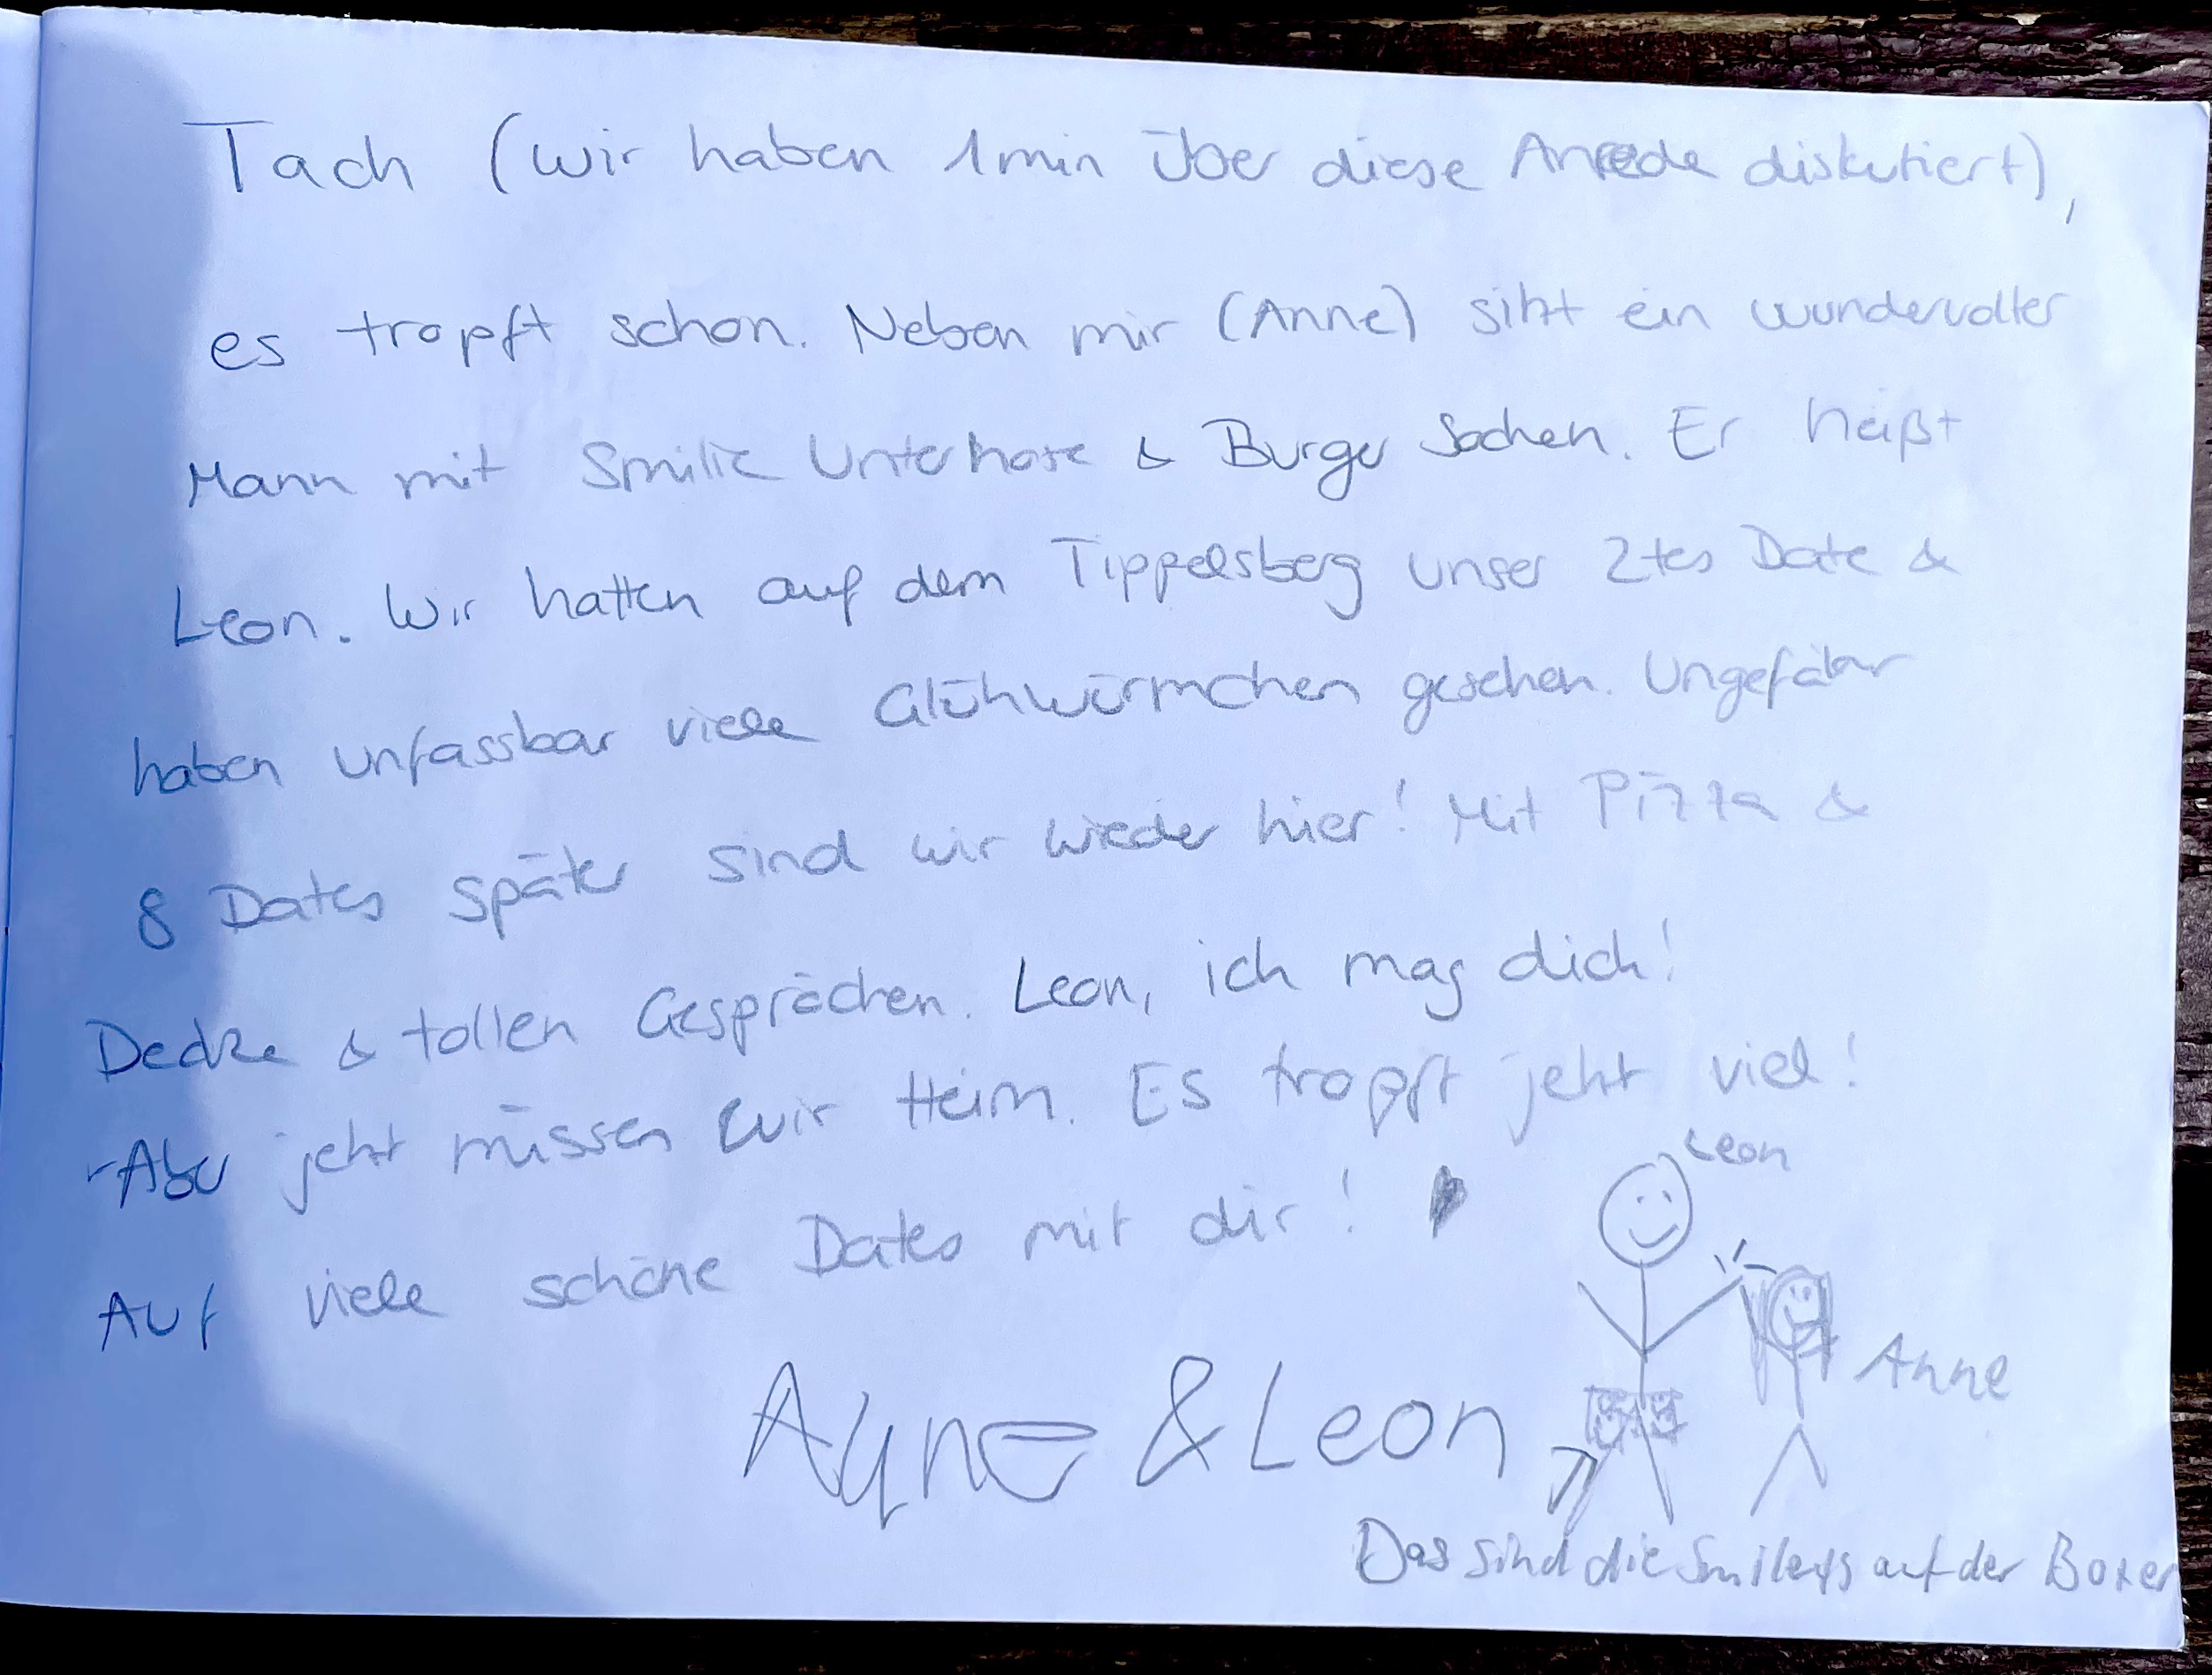 Tach (wir haben 1min über diese Anrede diskutiert),
es tropft schon. Neben mir (Anne) sitzt ein wundervoller
Mann mit Smilie Unterhose & Burger Socken. Er heißt
Leon. Wir hatten auf dem Tippelsberg unser 2tes Date &
haben unfassbar viele Glühwürmchen gesehen. Ungefähr
8 Dates später sind wir wieder hier! Mit Pizza &
Decke & tollen Gesprächen. Leon, ich mag dich!
Aber jetzt müssen wir Heim. Es tropft jetzt viel!
Auf viele schöne Dates mit dir!
Leon
Anne
Anne & Leon
Das sind die Smileys auf der Boxer